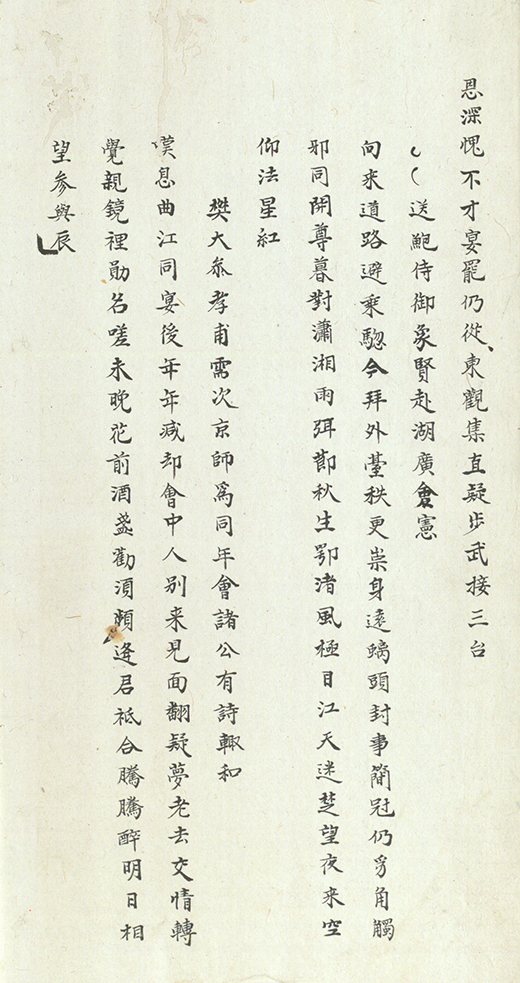 恩深愧不才宴罷仍從東觀集直疑步武接三台
送鮑侍御象賢赴湖廣僉憲
向來道路避乘驄今拜外臺秩更崇身遠螭頭封事簡冠仍豸角觸
邪同開尊暮對瀟湘雨弭節秋生鄂渚風極目江天迷楚望夜來空
仰法星紅
樊大叅孝甫需次京師爲同年會諸公有詩輙和
嘆息曲江同宴後年年减却會中人別来見面翻疑夢老去交情轉
覺親鏡裡勛名嗟未晚花前酒盞勸須頻逢君祗合騰騰醉明日相
望參與辰